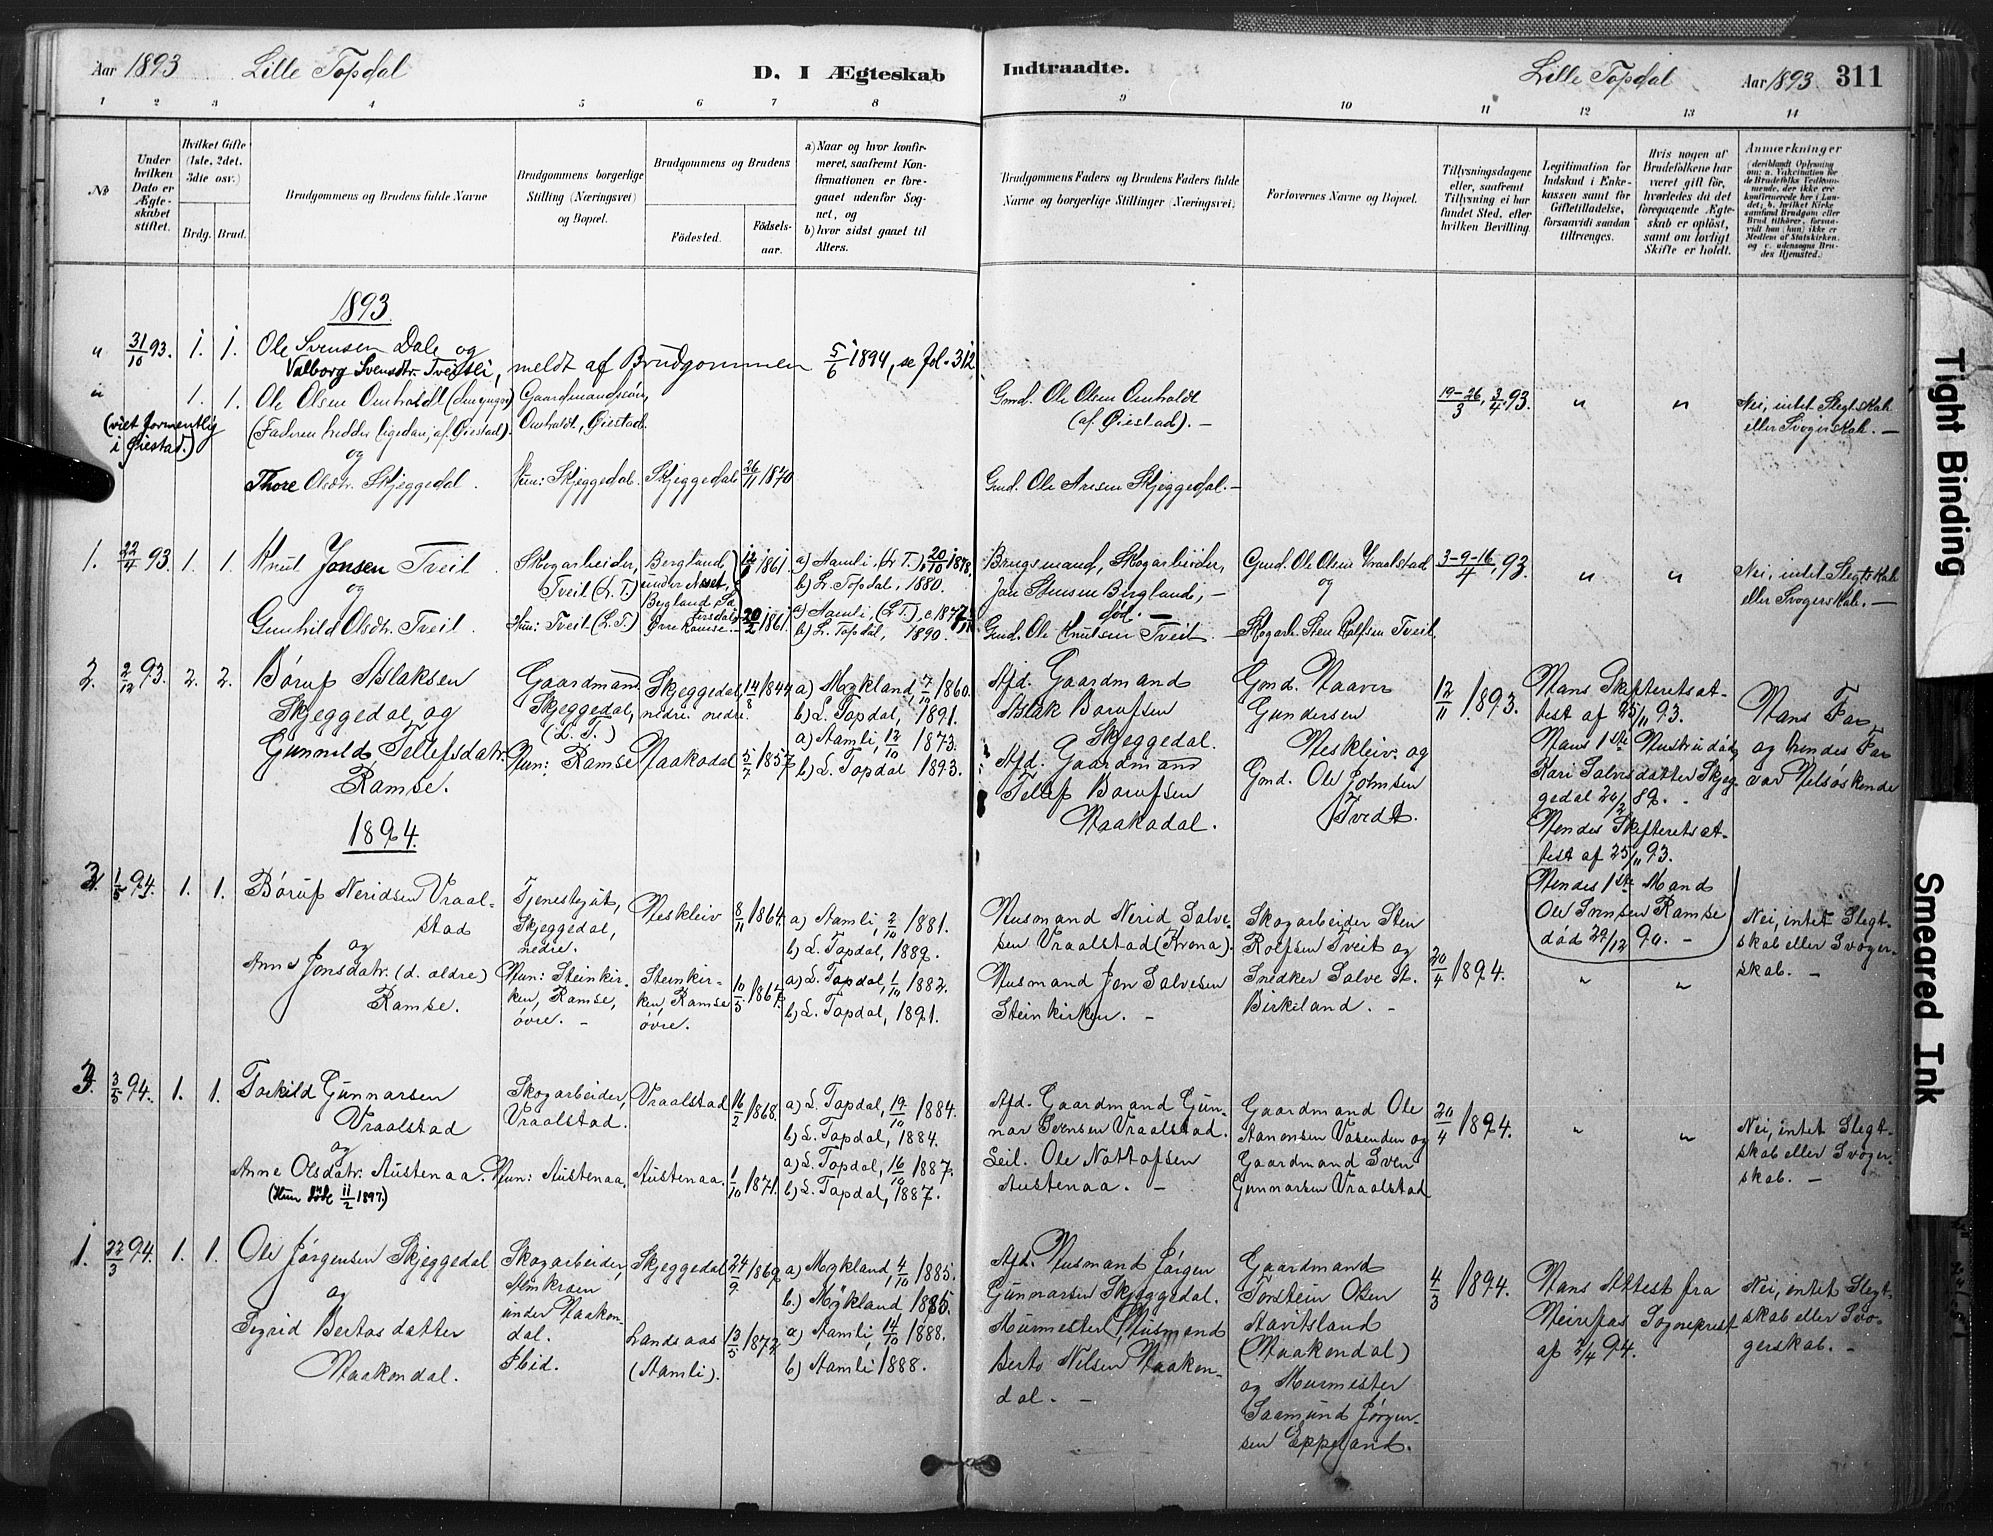 Aar 1893 Lille Topdal D. I Ægteskab Indtraadte. Lille Topdal Aar 1893 311
1 2 3 4 5 6 7 8 9 10 11 12 13 14
No
Under hvilken Dato er Ægteskabet stiftet.
Hvilket Gifte (1ste, 2det, 3die osv.)
Brdg. Brud.
Brudgommens og Brudens fulde Navne
Brudgommens borgerlige Stilling (Næringsvei) og Bopæl.
Brudgommens og Brudens
Fødested.
Fødselsaar.
a) Naar og hvor konfirmeret, saafremt Konfirmationen er foregaaet udenfor Sognet, og
b) hvor sidst gaaet til Alters.
Brudgommens Faders og Brudens Faders fulde Navne og borgerlige Stillinger (Næringsvei)
Forlovernes Navne og Bopæl.
Tillysningsdagene eller, saafremt Tillysning ei har fundet Sted, efter hvilken Bevilling.
Legitimation for Indskud i Enkekassen samt for Giftetilladelse, forsaavidt saadan tiltrænges.
Hvis nogen af Brudefolkene har været gift før, hvorledes da det foregaaende Ægteskab er opløst, samt om lovligt Skifte er holdt.
Anmærkninger
(deriblandt Oplysning om: a. Vaccination for de Brudefolks Vedkommende, der ikke ere konfirmerede her i Landet; b. hvilket Kirkesamfund Brudgom eller Brud tilhører, forsaavidt han (hun) ikke er Medlem af Statskirken, og c. udensogns Brudes Hjemsted.)
1893
" 31/10 93. 1. 1. Ole Svensen Dale og
Valborg Svensdtr. Tveitli, meldt af Brudgommen 5/6 1894, se Fol. 312
" 1. 1. Ole Olsen Omholdt (den yngre)
(viet formentlig i Øiestad.)
(Faderen hedder ligedan, af Øiestad).
og
Thore Olsdtr. Skjeggedal.
Gaardmandssøn,
Omholdt, Øiestad.
Hun: Skjeggedal. Skjeggedal 26/11 1870
Gmd. Ole Olsen Omholdt
(af Øiestad). —
Gmd. Ole Aresen Skjeggedal. —
19-26/3, 3/4 93. " "
Nei, intet Slegtskab
eller Svogerskab. —
1. 22/4 93. 1. 1. Knut Jonsen Tveit
og
Gunhild Olsdtr. Tveit.
Skogarbeider,
Tveit (L. T.)
Hun: Tveit (L. T.)
Bergland,
under Neset,
1861.
20/2 1861.
a) Aamli, (L. T.), 20/10 1878,
b) L. Topdal, 1880.
a) Aamli, (L. T.),
b) L. Topdal, 1890.
Brugsmand, Skogarbeider,
Jon Stensen Bergland, —
død. —
Gmd. Ole Knutsen Tveit. —
Gmd. Ole Olsen Vraalstad
og
Skogarb. Sten Rolfsen Tveit
3-9-16/4, 93. " "
Nei, intet Slegtskab
eller Svogerskab. —
2. 2/12 93. 2. 2. Børuf Aslaksen
Skjeggedal og
Gunnild Tellefsdatr.
Ramse.
Gaardmand
Skjeggedal,
(L. T.)
Hun: Ramse
Skjeggedal,
nedre.
Haakodal
14/8 1844
5/7 1857
a) Mykland, 1860.
b) L. Topdal, 1891.
a) Aamli, 12/10 1873.
b) L. Topdal, 1893.
Afd. Gaardmand
Aslak Borufsen
Skjeggedal.
Afd. Gaardmand
Tellef Borufsen
Haakodal.
Gmd. Haaver
Gundersen
Heskleiv. og
Gmd. Ole Johnsen
Tvedt.
12/11 1893.
Hans Skifteretsat-
test af 25/11 93.
Hans 1ste Hustru død,
Kari Salvesdatter Skjeg-
gedal 20/2 89.
Hendes Skifteretsat-
test af 25/11 93.
Hendes 1ste Mand
Ole Svensen Ramse
død 29/12 90. —
Hans Far
og hendes Far
var Helsøskende
1894.
3. 1/5 94. 1. 1. Børuf Neridsen Vraal-
stad
og
Anne Jonsdatr. (d. ældre)
Ramse.
Tjenestegut,
Skjeggedal,
nedre.
Hun: Steinkir-
ken, Ramse,
øvre. —
Heskleiv
Steinkir-
ken, Ramse
øvre.
8/11 1864.
10/5 1867.
a) Aamli, 2/10 1881.
b) L. Topdal, 1889.
a) L. Topdal, 1/10 1882.
b) L. Topdal, 1891.
Husmand Nerid Salve-
sen Vraalstad (Krona).
Husmand Jon Salvesen
Steinkirken. —
Skogarbeider Sten
Rolfsen Tveit og
Snedker Salve St.
Birkeland. —
20/4 1894. " "
Nei, intet Slegt-
skab eller Svoger-
skab. —
3/5 94. 1. 1. Torkild Gunnarsen
Vraalstad
og
Anne Olsdatr. Austenaa.
(Hun døde 11/2 1897)
Skogarbeider,
Vraalstad.
Hun: Austenaa.
Vraalstad
Austenaa.
16/2 1868.
1/10 1871.
a) L. Topdal, 19/10 1884.
b) L. Topdal, 1884.
a) L. Topdal, 16/10 1887.
b) L. Topdal, 1887.
Afd. Gaardmand Gun-
nar Svensen Vraalstad.
Seil. Ole Nottofsen
Austenaa. —
Gaardmand Ole
Aanonsen Vasenden og
Gaardmand Sven
Gunnarsen Vraalstad
20/4 1894. " "
Nei, intet Slegt-
skab eller Svoger-
skab. —
1. 22/3 94. 1. 1. Ole Jørgensen Skjeggedal
og
Sigrid Bertosdatter
Haakondal.
Skogarbeider,
under Haakon-
dal.
Ibid.
Skjeggedal
Landsaas
(Aamli).
24/9 1869
13/5 1872
a) Mykland, 4/10 1885.
b.) Mykland 1885.
a) Aamli, 14/10 1888.
b) Aamli 1888.
Afd. Husmand Jørgen
Gunnarsen Skjeggedal.
Murmester, Husmand
Berto Nilsen Haakon-
dal. —
Gaardmand
Torstein Olsen
Stavitsland
(Haakondal)
og Murmester
Saamund Jørgen-
sen Eppeland.
4/3 1894.
Hans Attest fra
Heirefos Sogneprest
af 2/4 94.
Nei, intet Slegt-
skab eller Svo-
gerskab. —
Tight Binding
Smeared Ink